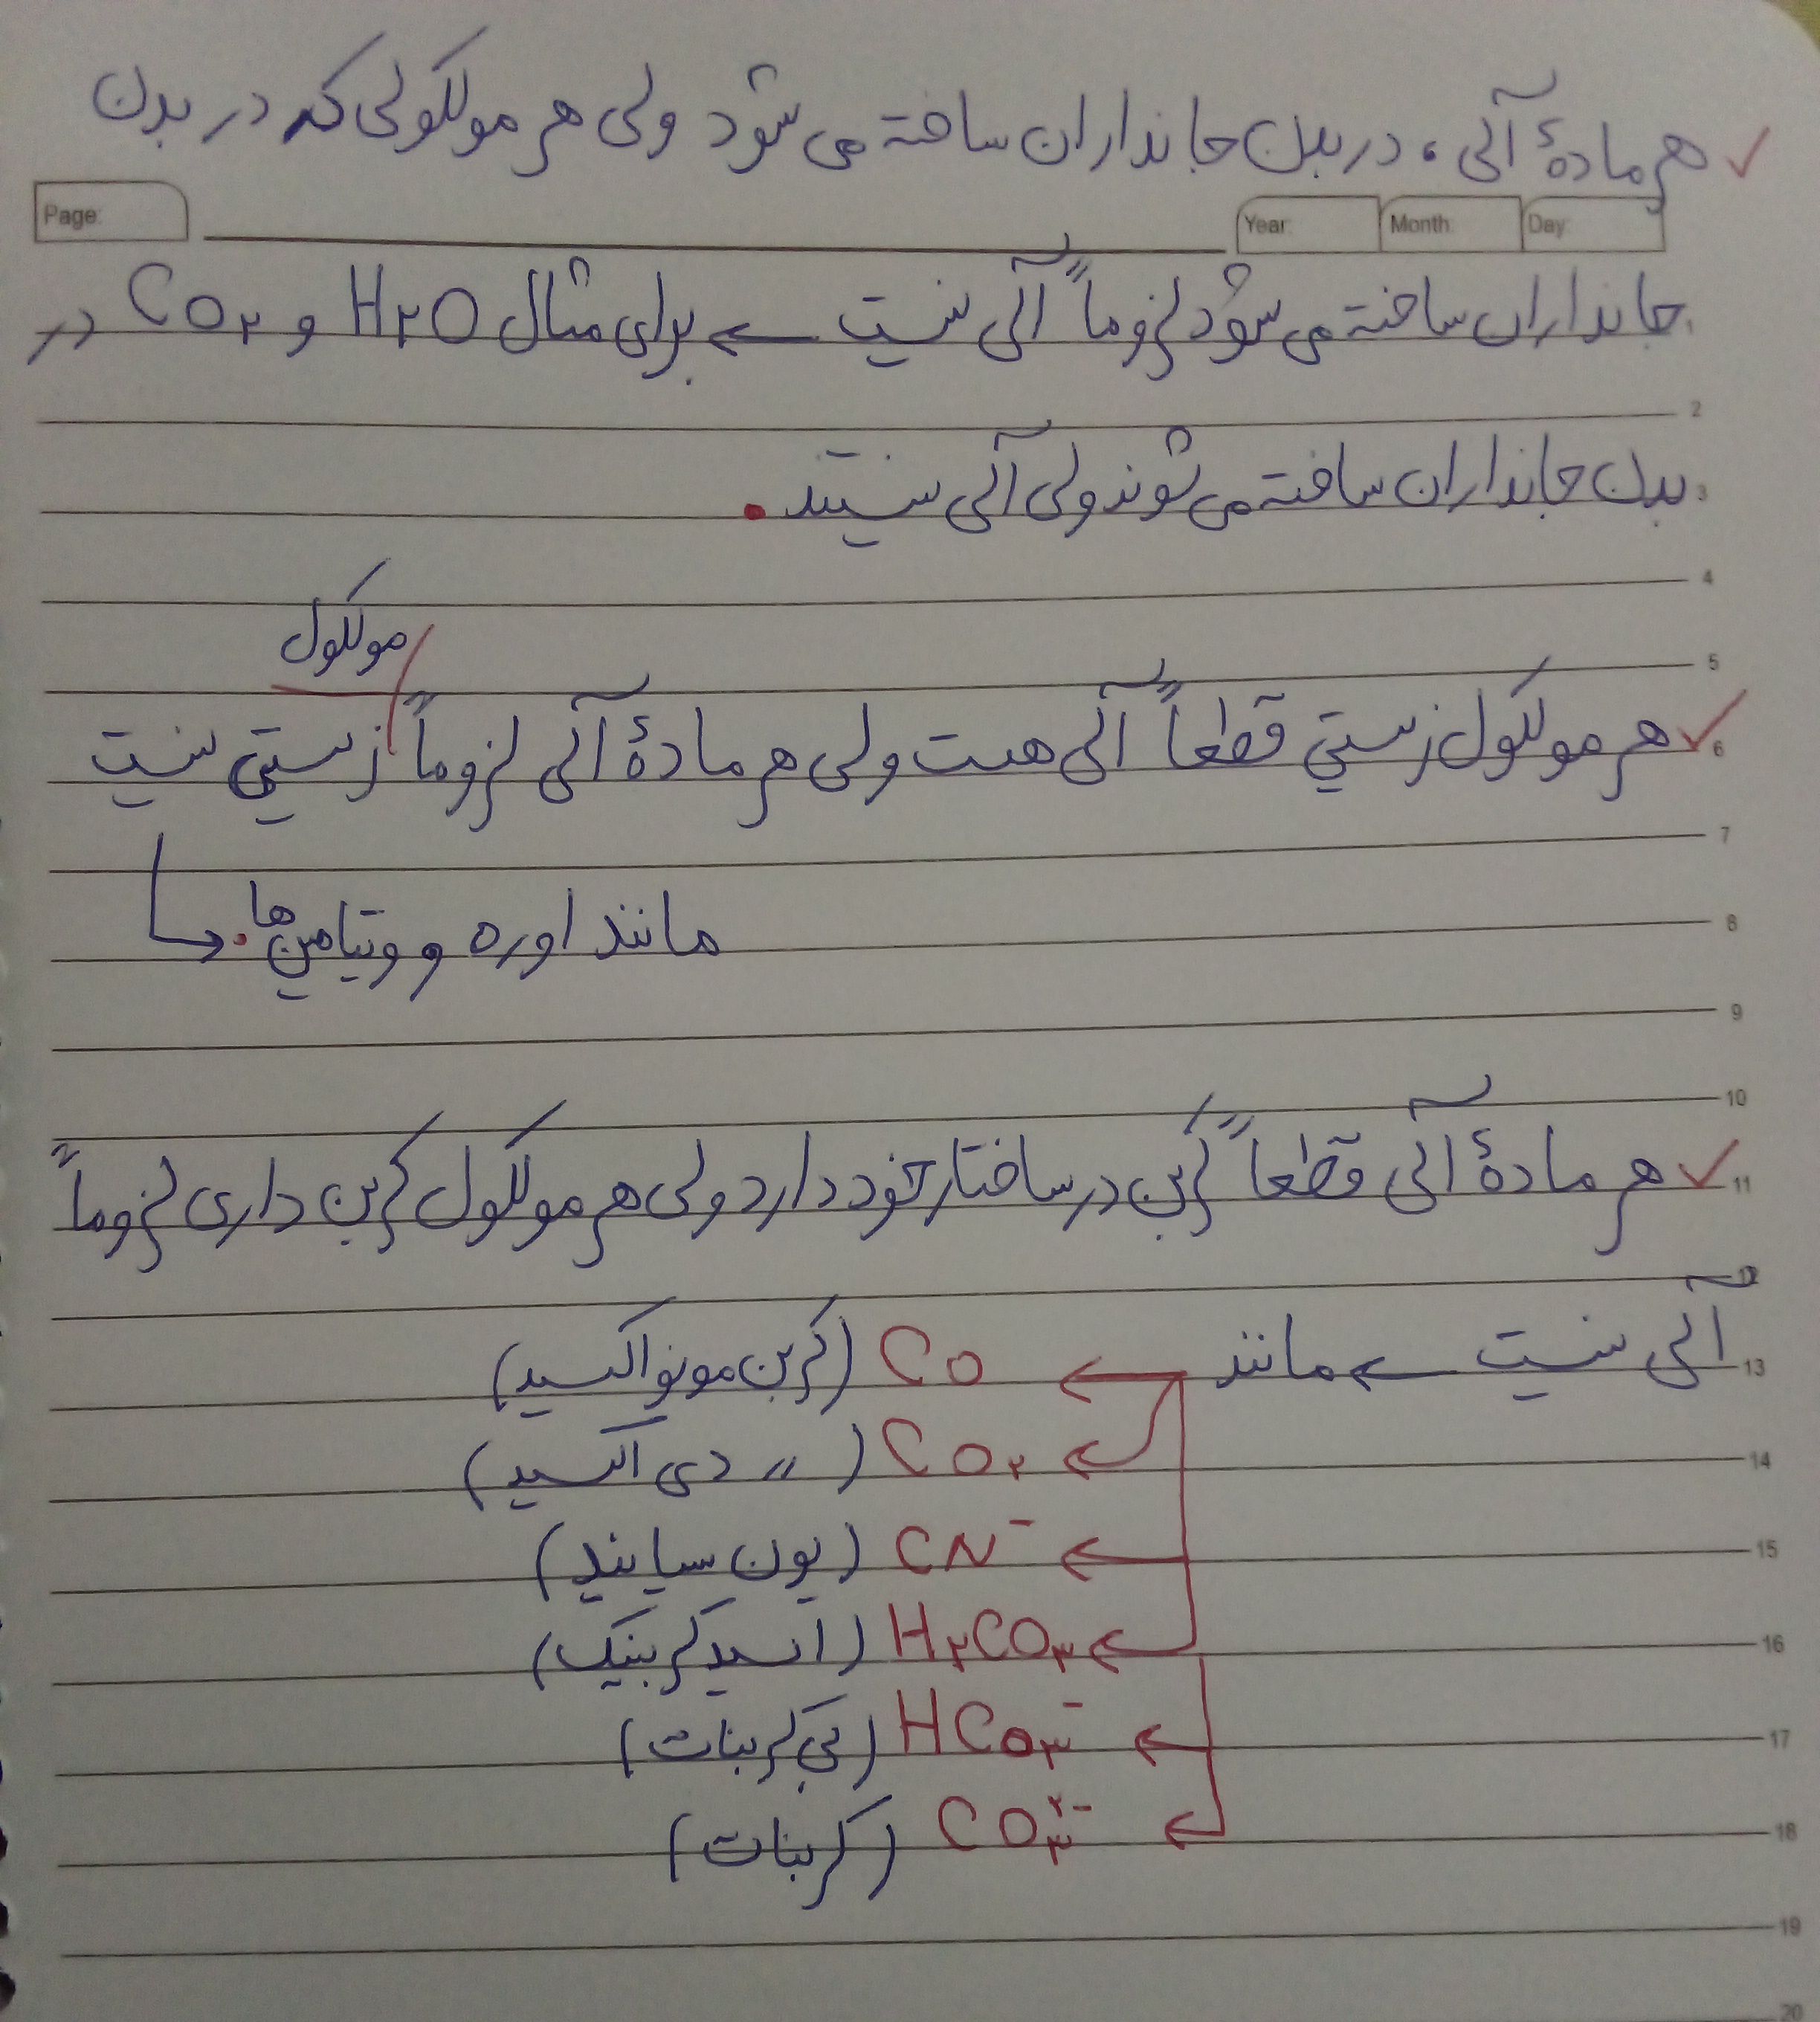 ✓ هر مادهٔ آلی، در بدن جانداران ساخته می شود ولی هر مولکولی که در بدن
Page: Year: Month: Day:
جانداران ساخته می شود لزوماً آلی نیست ← برای مثال H۲O و CO۲ در
2
3 بدن جانداران ساخته می شوند ولی آلی نیستند.
4
مولکول
5
6 ✓ هر مولکول زیستی قطعاً آلی هست ولی هر مادهٔ آلی لزوماً / زیستی نیست
7
8 مانند اوره و ویتامین ها.
9
10
11 ✓ هر مادهٔ آلی قطعاً کربن در ساختار خود دارد ولی هر مولکول کربن داری لزوماً
12
13 آلی نیست ← مانند ← CO (کربن مونواکسید)
14 ← CO۲ (〃 دی اکسید)
15 ← CN⁻ (یون سیانید)
16 ← H۲CO۳ (اسید کربنیک)
17 ← HCO۳⁻ (بی کربنات)
18 ← CO۳²⁻ (کربنات)
19
20